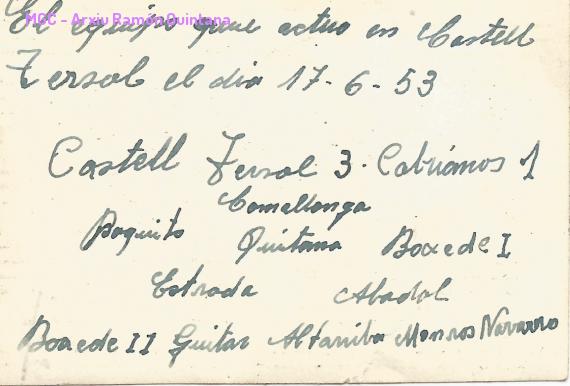 MGC - Arxiu Ramón Quintana
El equipo que actuo en Castell
Tersol el dia 17-6-53
Castell Tersol 3 · Cabrianos 1
Comellonga
Paquito Quintana Boxede I
Estrada Abadal
Boxede II Guitar Altarriba Monros Navarro